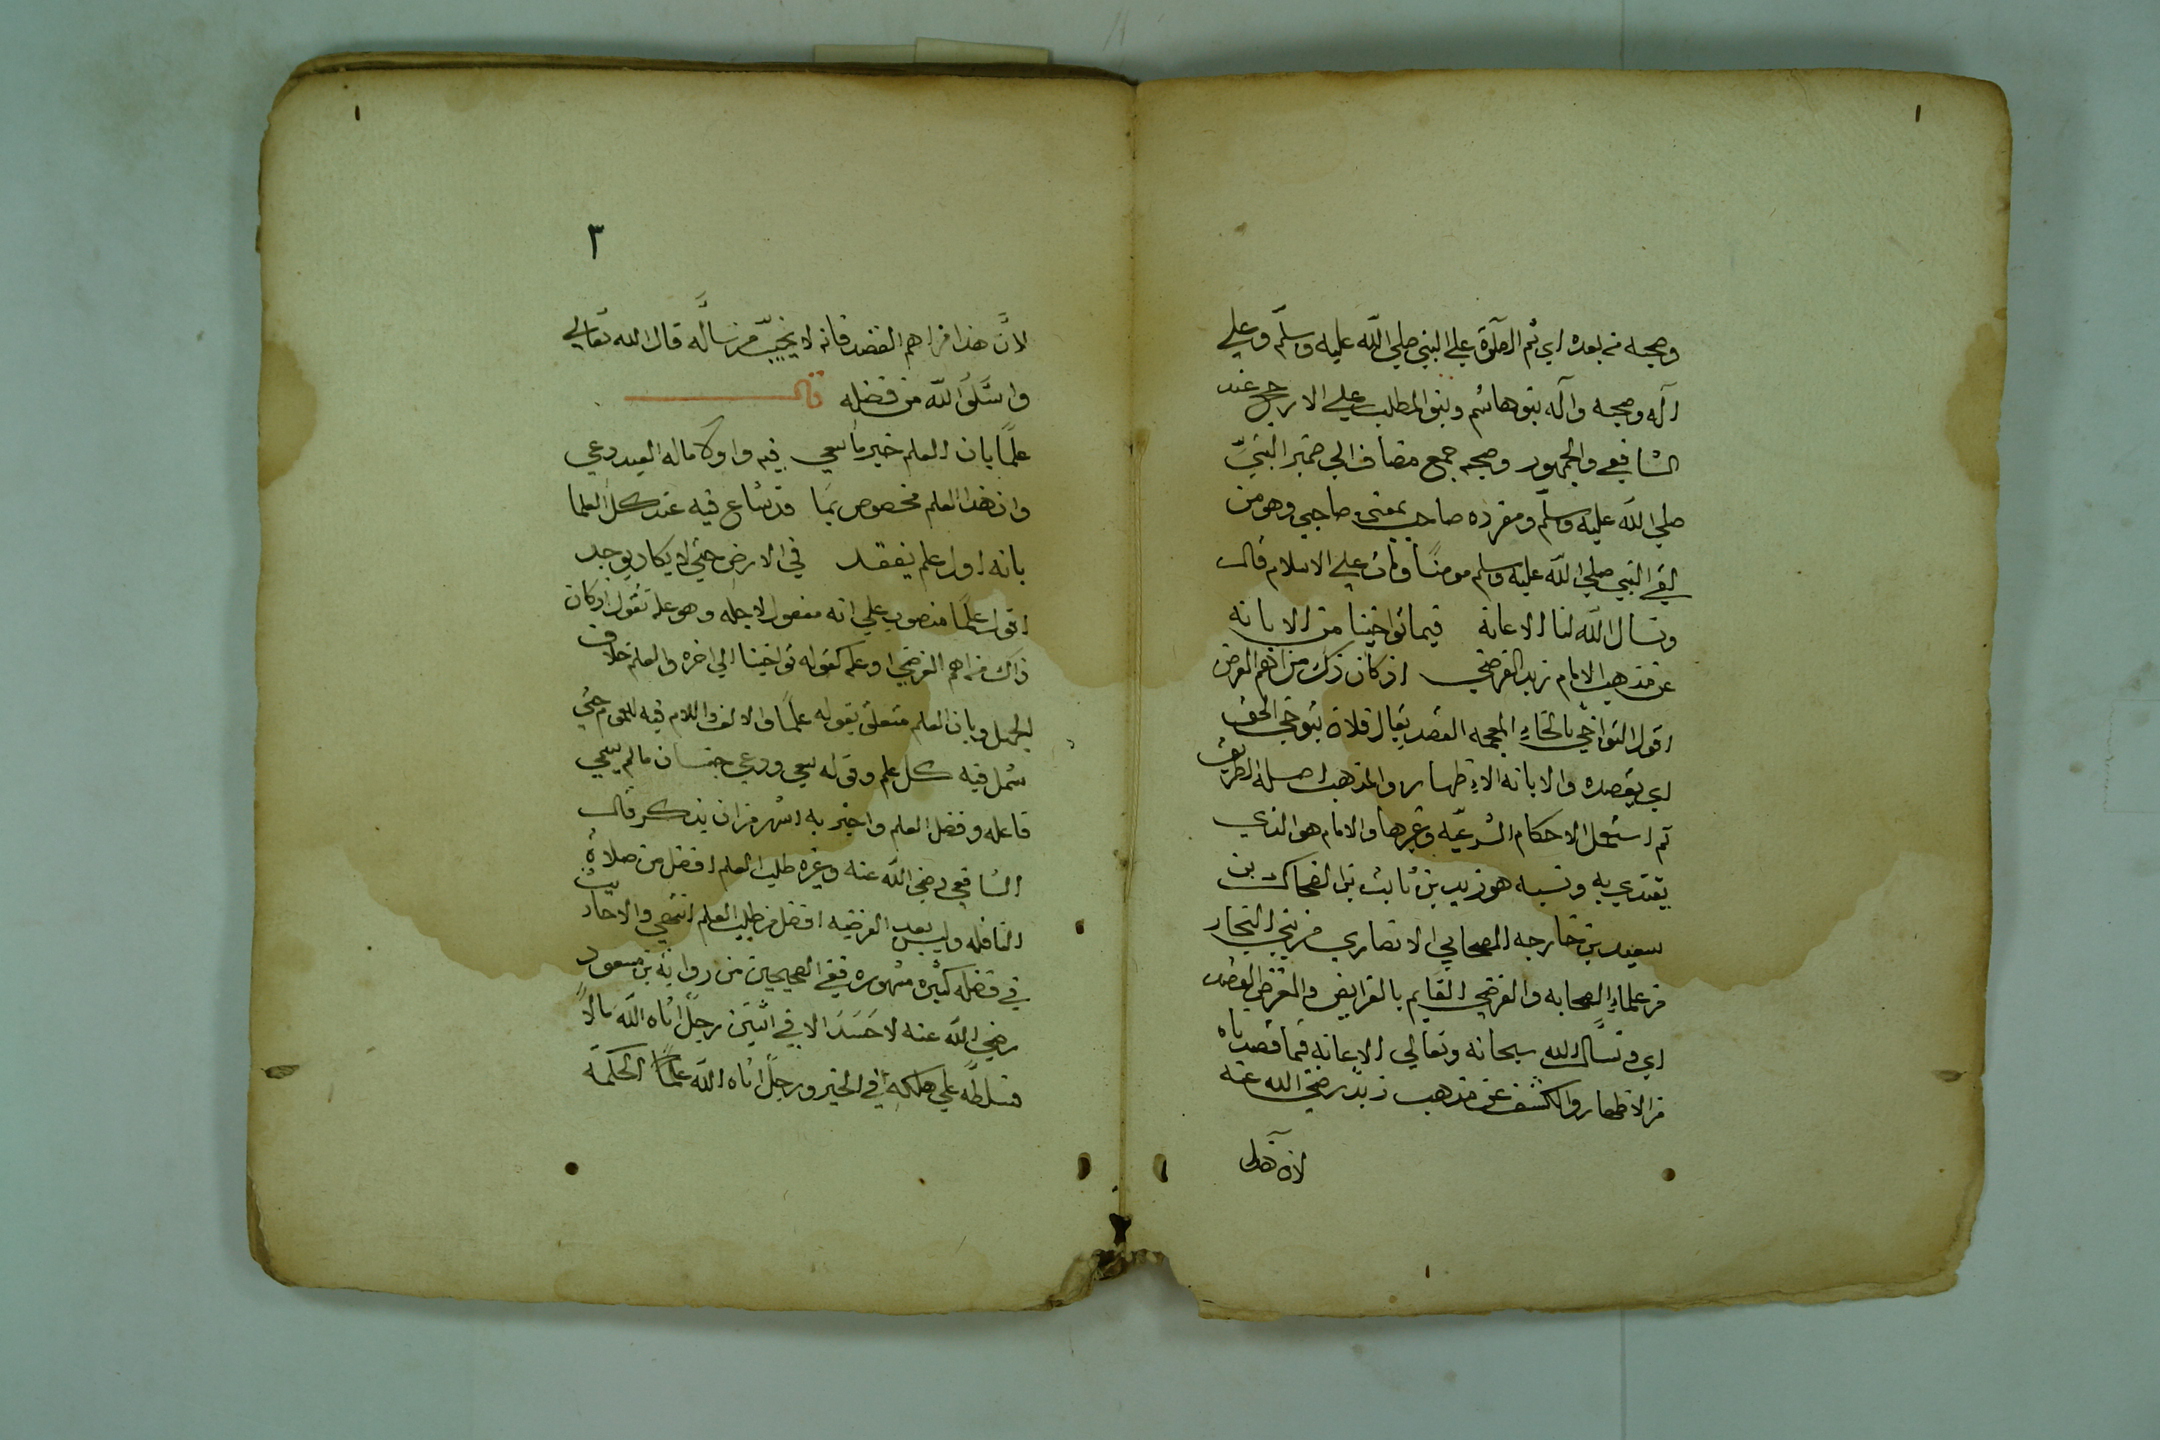 وصحبه من بعده اي ثم الصلوة علي النبي صلي الله عليه وسلّم وعلي
آله وصحبه وآله بنوهاشم وبنو المطلب علي الارجح عند
الشافعي والجمهور وصحبه جمع مضاف الي ضمير النبيّ
صلي الله عليه وسلّم ومفرده صاحب بمعني صاحبي وهو من
لقي النبي صلي الله عليه وسلم مومنًا ومات علي الاسلام قال
ونسال الله لنا الاعانة فيما تواخينا من الابانة
عن مذهب الامام زيد الفرضي اذ كان ذك من اهم الغرض
اقول التواخي بالخاءِ المعجمه القصد يقال فلان يتوخي الحق
اي يقصده والابانه الاظهار والمذهب اصله الطريق
ثم استعمل الاحكام الشرعيّه وغيرها والامام هو الذي
يقتدي به ونسبه هو زيد بن ثابت بن الضحاك بن
سعيد بن خارجه الصحابي الانصاري من بني النجار
من علماءِ الصحابه والفرضي القايم بالفرايض والغرض القصد
اي ونسال الله سبحانه وتعالي الاعانه فيما قصدناه
من الاظهار والكشف عن مذهب زيد رضي الله عنه
لان هذا
٣
لانّ هذا من اهم القصد فانه لا يخيّب من سالَه قال الله تعالي
واسئلوا الله من فضله قال
علمًا بان العلم خير ما سعي فيه واولا ماله العبد دعي
وان هذا العلم مخصوص بمَا قد شاع فيه عند كل العلما
بانه اول علم يفقد في الارض حتي لا يكاد يوجد
اقول علمًا منصوب علي انه مفعول لاجله وهو علة لقول اذ كان
ذاك من اهم الغرض او علة لقوله تواخينا الي اخره والعلم خلاف
الجهل وبان العلم متعلق بقوله علمًا والالف واللام فيه للعموم حتي
شمل فيه كل علم وقوله سعي ودعي جنسان ما لم يسمي
فاعله وفضل العلم والخير به اشهر من ان يذكر قال
الشافعي رضي الله عنه وغيره طلب العلم افضل من صلاة
النافله وليس بعد الفرضيه افضل من طلب العلم انتهي والاحاديث
في فضله كثيره مشهوره ففي الصحيحين من رواية بن مسعود
رضي الله عنه لا حَسَدَ الا في اثنتين رجلٌ اتاه الله مالاً
فسلطه علي هلكته في الخير ورجلٌ اتاه الله علمًا الحكمة